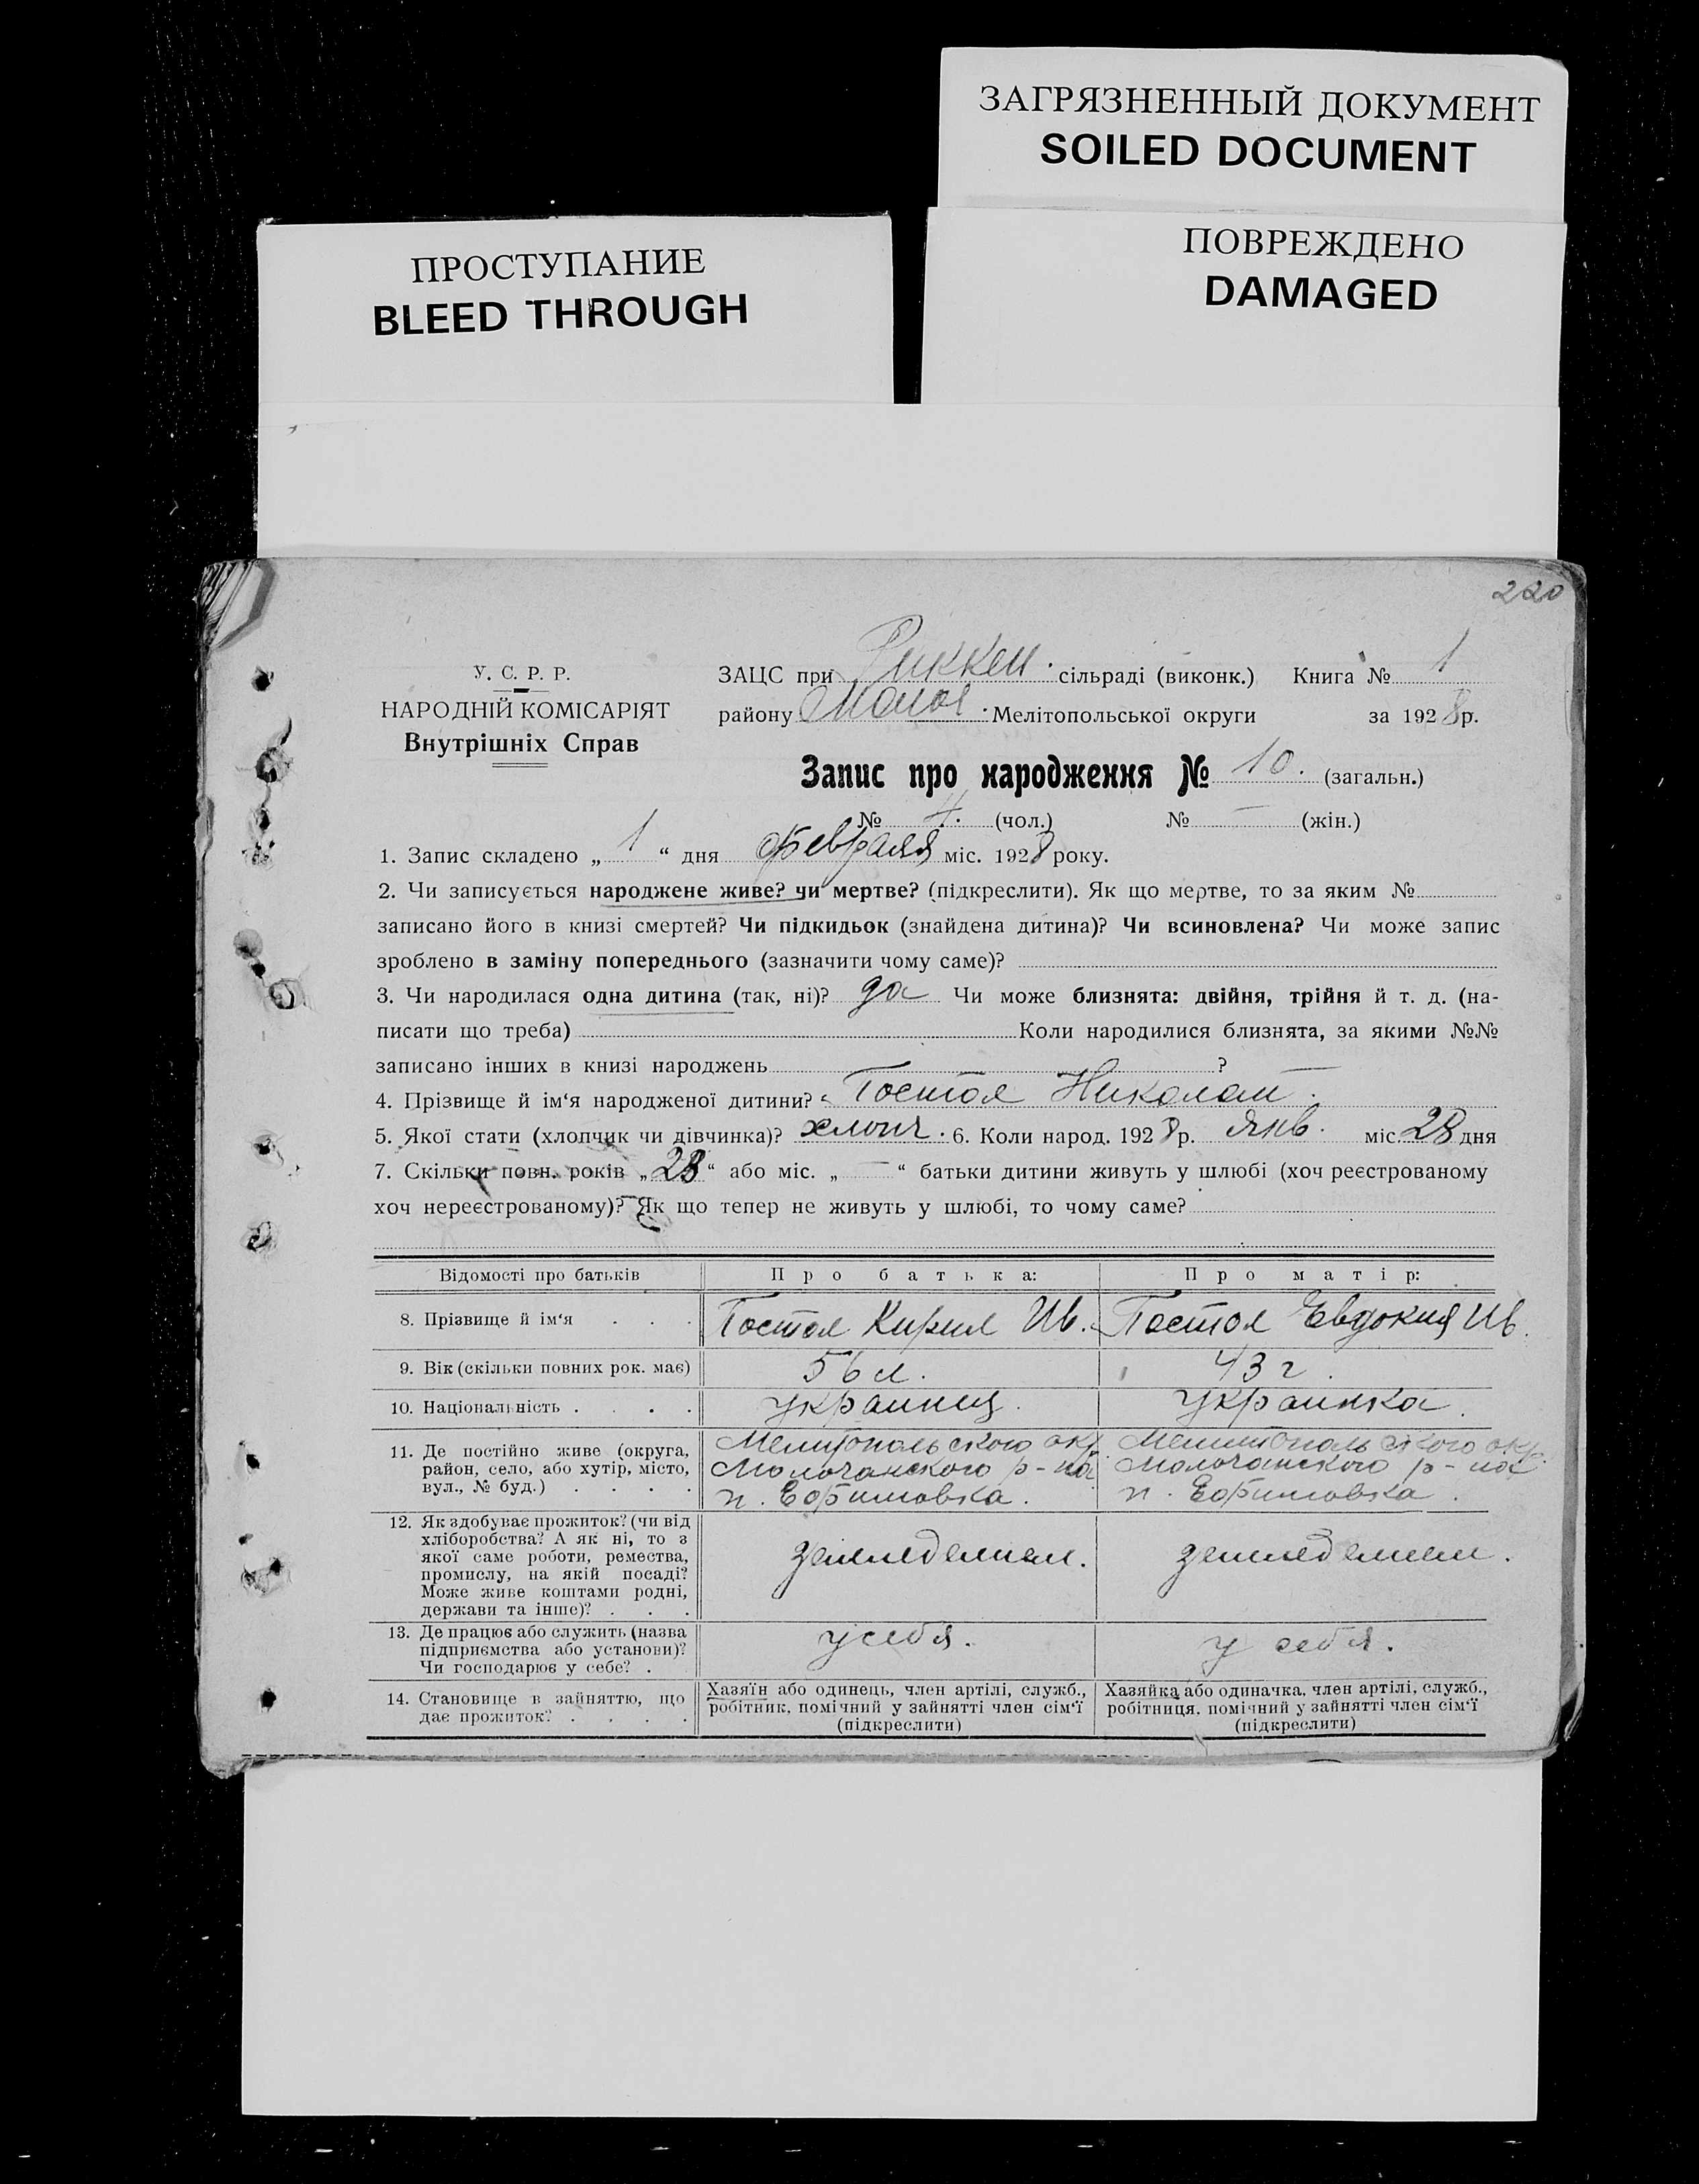 ЗАГРЯЗНЕННЫЙ ДОКУМЕНТ
SOILED DOCUMENT
ПРОСТУПАНИЕ
BLEED THROUGH
ПОВРЕЖДЕНО
DAMAGED
220
У. С. Р. Р.
НАРОДНІЙ КОМІСАРІЯТ
Внутрішніх Справ
ЗАЦС при Риккен. сільраді (виконк.) Книга № 1
району Молоч. Мелітопольської округи за 1928 р.
Запис про народження № 10. (загальн.)
№ 4. (чол.) № — (жін.)
1. Запис складено „ 1 “ дня Февраля міс. 1928 року.
2. Чи записується народжене живе? чи мертве? (підкреслити). Як що мертве, то за яким №
записано його в книзі смертей? Чи підкидьок (знайдена дитина)? Чи всиновлена? Чи може запис
зроблено в заміну попереднього (зазначити чому саме)?
3. Чи народилася одна дитина (так, ні)? да Чи може близнята: двійня, трійня й т. д. (на-
писати що треба) Коли народилися близнята, за якими №№
записано інших в книзі народжень ?
4. Прізвище й ім‘я народженої дитини? Гостол Николай.
5. Якої стати (хлопчик чи дівчинка)? хлопч. 6. Коли народ. 1928 р. Янв. міс. 28 дня
7. Скільки повн. років „ 23 “ або міс. „ — “ батьки дитини живуть у шлюбі (хоч реєстрованому
хоч нереєстрованому)? Як що тепер не живуть у шлюбі, то чому саме?
Відомості про батьків Про батька: Про матір:
8. Прізвище й ім‘я . . . Гостол Кирил Ив. Гостол Евдокия Ив.
9. Вік (скільки повних рок. має) 56 л. 43 г.
10. Національність . . . . украинец. украинка.
11. Де постійно живе (округа,
район, село, або хутір, місто,
вул., № буд.) . . . .
Мелитопольского окр.
Молочанского р-на
п. Ефимовка.
Мелитопольского окр.
Молочанского р-на
п. Ефимовка.
12. Як здобуває прожиток? (чи від
хліборобства? А як ні, то з
якої саме роботи, ремества,
промислу, на якій посаді?
Може живе коштами родні,
держави та інше)? . . .
земледелием.
земледелием.
13. Де працює або служить (назва
підприємства або установи)?
Чи господарює у себе? .
у себя.
у себя.
14. Становище в зайняттю, що
дає прожиток? . . . .
Хазяїн або одинець, член артілі, служб.,
робітник, помічний у зайнятті член сім‘ї
(підкреслити)
Хазяйка або одиначка, член артілі, служб.,
робітниця, помічний у зайнятті член сім‘ї
(підкреслити)